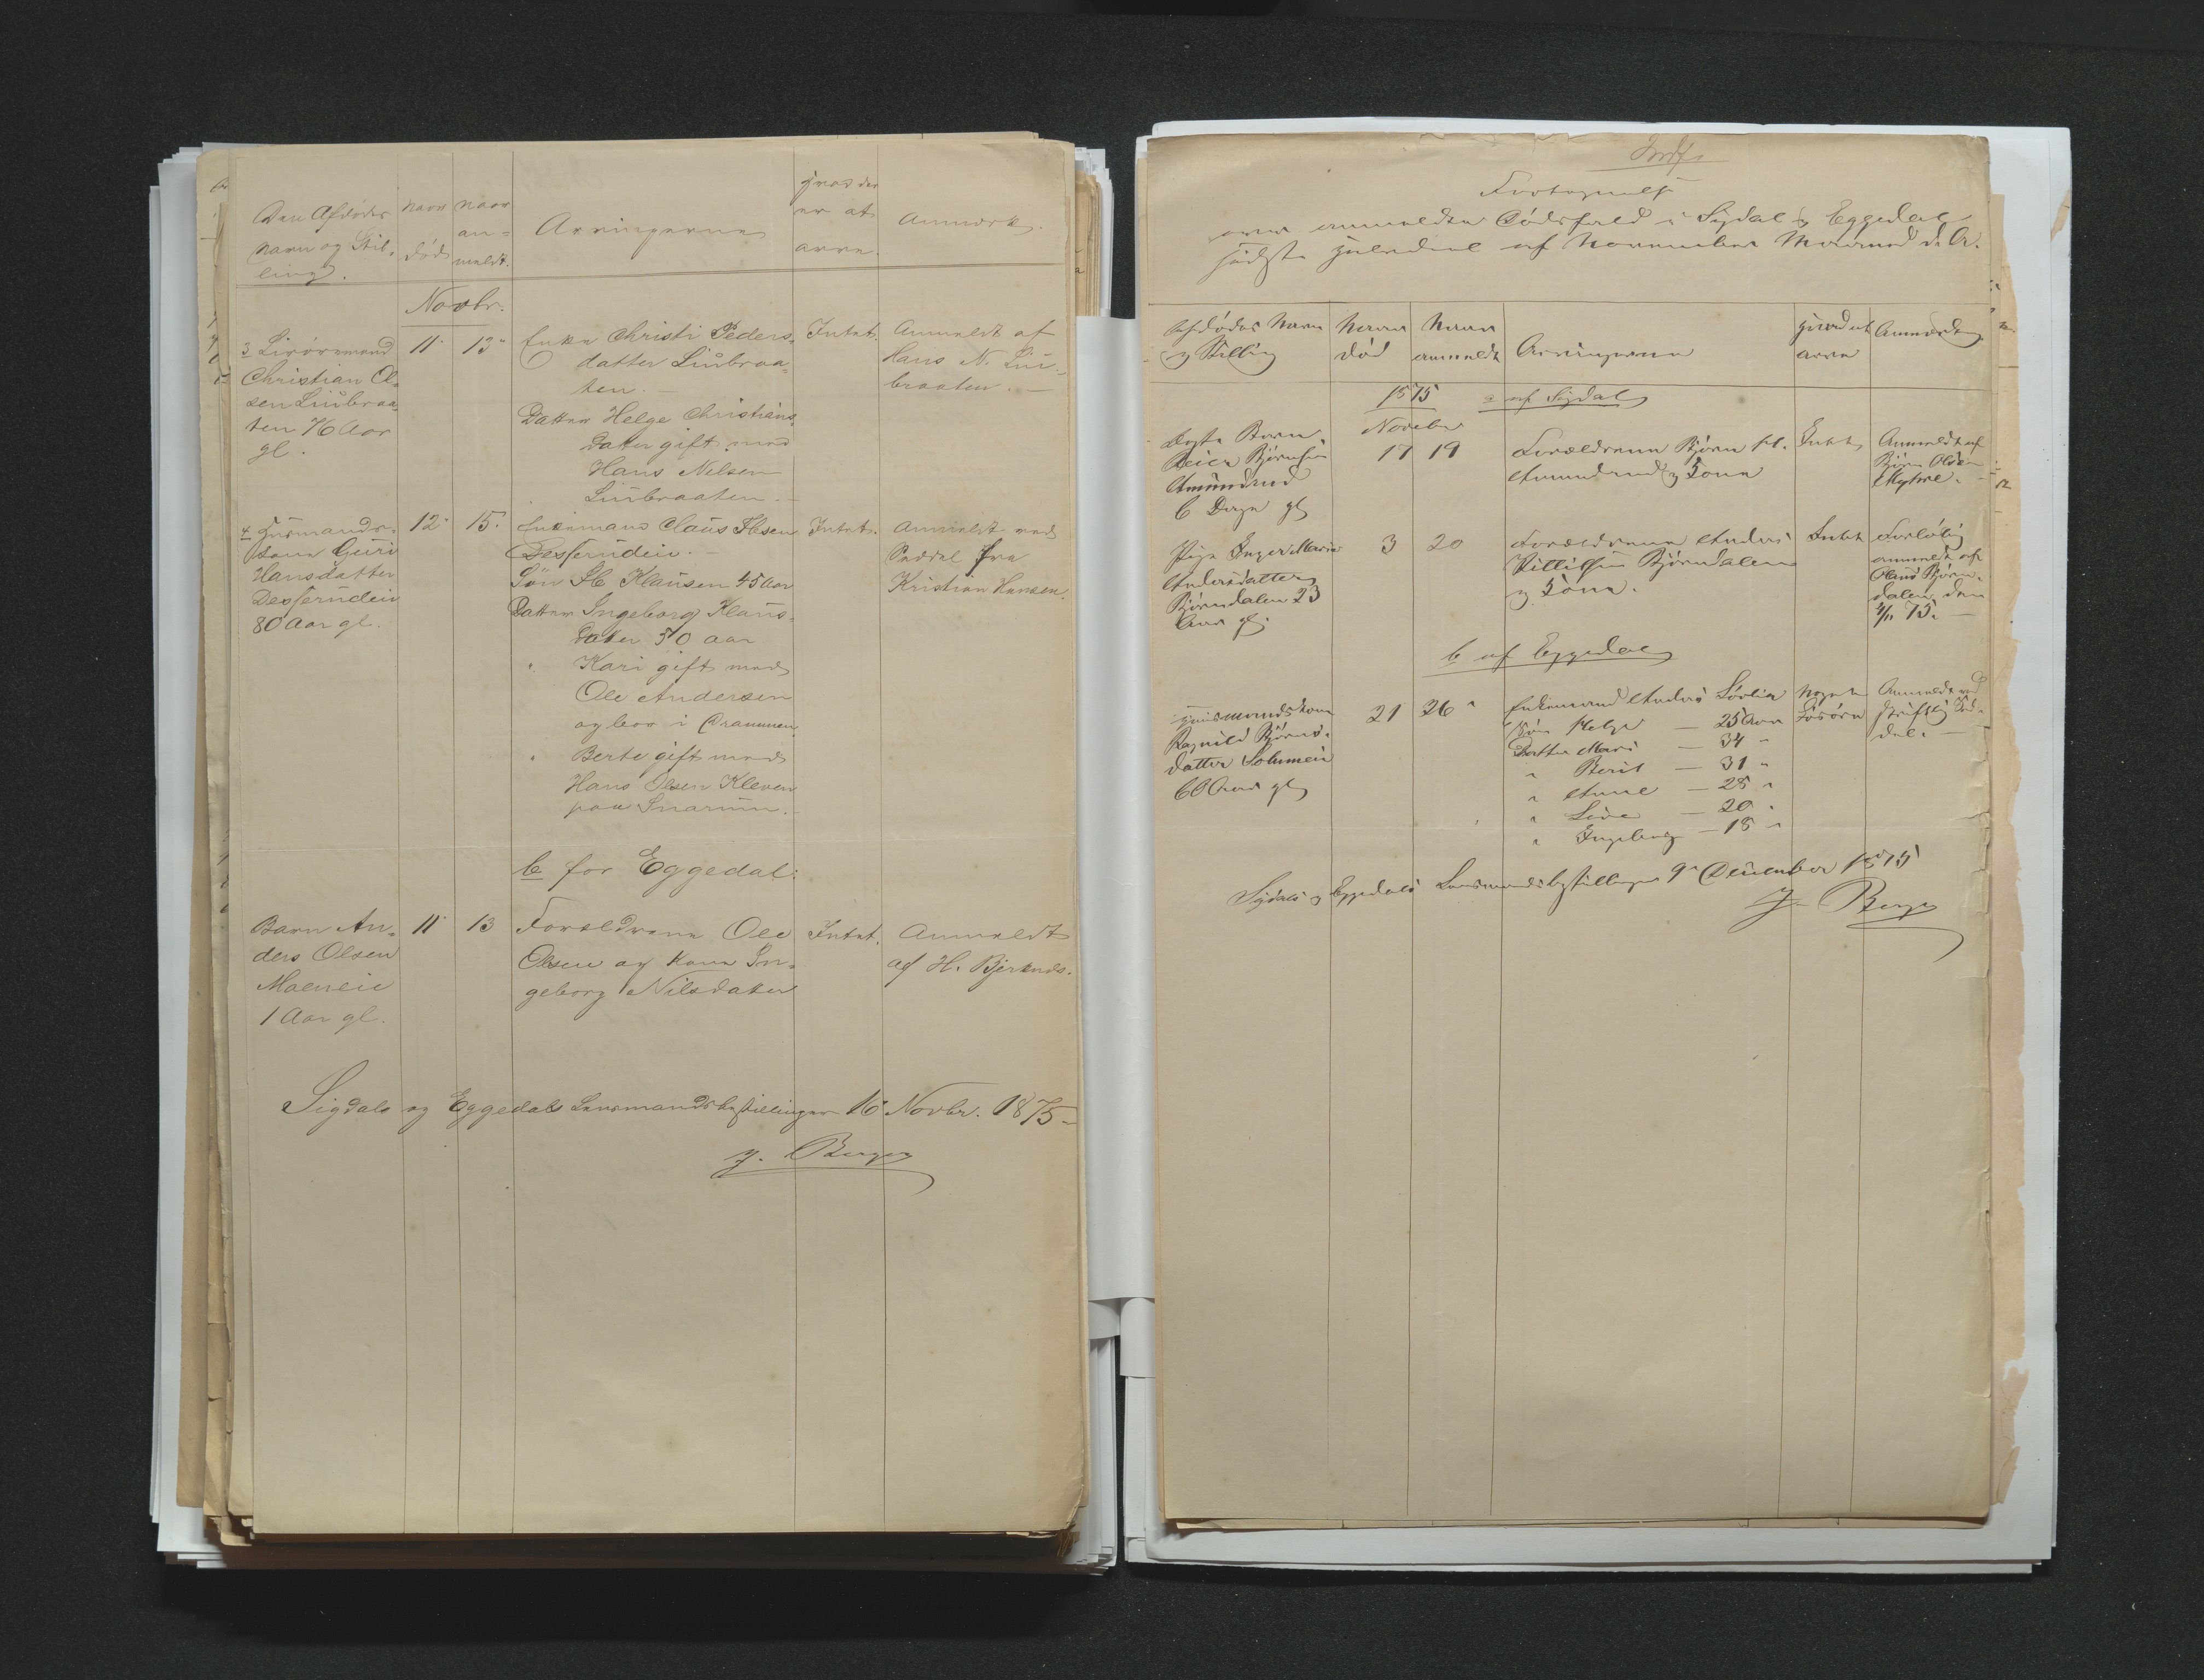 Den Afdødes
Navn og Stil-
ling.
Naar
død
Naar
an-
meldt.
Arvingerne
Hvad der
er at
arve.
Anmærk.
Novbr.
3 
Christian Ol-
sen Liubraa-
ten 76 Aar
gl.
11
13
Enke Christi Peders-
datter Liubraa-
ten. —
Datter Helge Christians-
datter gift med
Hans Nilsen
Liubraaten. —
Intet.
Anmeldt af
Hans N. Liu-
braaten. —
4 Husmands-
kone Guri
Hansdatter
Desserudeie
80 Aar gl.
12
15.
Enkemand Claus Ibsen
Desserudeie. —
Søn Ib Klausen 45 Aar
Datter Ingeborg Klaus-
datter 50 aar
" Kari gift med
Ole Andersen
og bor i Drammen.
" Berte gift med
Hans Olsen Kleven
paa Snarum. —
Intet.
Anmeldt ved
Seddel fra
Kristian Hansen.
b for Eggedal:
Barn An-
ders Olsen
Moeneie
1 Aar gl.
11
13
Forældrene Ole
Olsen og Kone In-
geborg Nilsdatter
Intet.
Anmeldt
af H. Bjerknes.
Sigdals og Eggedals Lensmandsbestillinger 16 Novbr. 1875 —
J. Berger
Fortegnelse
over anmeldte Dødsfald i Sigdal og Eggedal
sidste halvdel af November Maaned d. A.
Afdødes Navn
og Stilling
Naar
død
Naar
anmeldt
Arvingerne
Hvad at
arve
Anmærkn.
1875
November
a af Sigdal
Døbte Barn
Reier Bjørnsen
Amundrud
6 Dage gl
17
19
Forældrene Bjørn H.
Amundrud og Kone
Intet
Anmeldt af
Bjørn Olsen
Myhre. —
Pige Inger Marie
Andersdatter
Bjørndalen 23
Aar gl.
3
20
Forældrene Anders
Kittilsen Bjørndalen
og Kone.
Intet
Forløbig
anmeldt af
Olaus Bjørn-
dalen, den
4/11 75. —
b af Eggedal
Husmandskone
Ragnild Bjørns-
datter Solumeie
60 Aar gl
21
26
Enkemand Anders Sørlia
Søn Helge — 25 Aar
Datter Mari — 34 "
" Berit — 31 "
" Anne — 28 "
" Live — 20 "
" Ingeborg — 18 "
Noget
Løsøre
Anmeldt ved
skriftlig Sed-
del. —
Sigdals og Eggedals Lensmandsbestillinger 9 December 1875
J. Berger